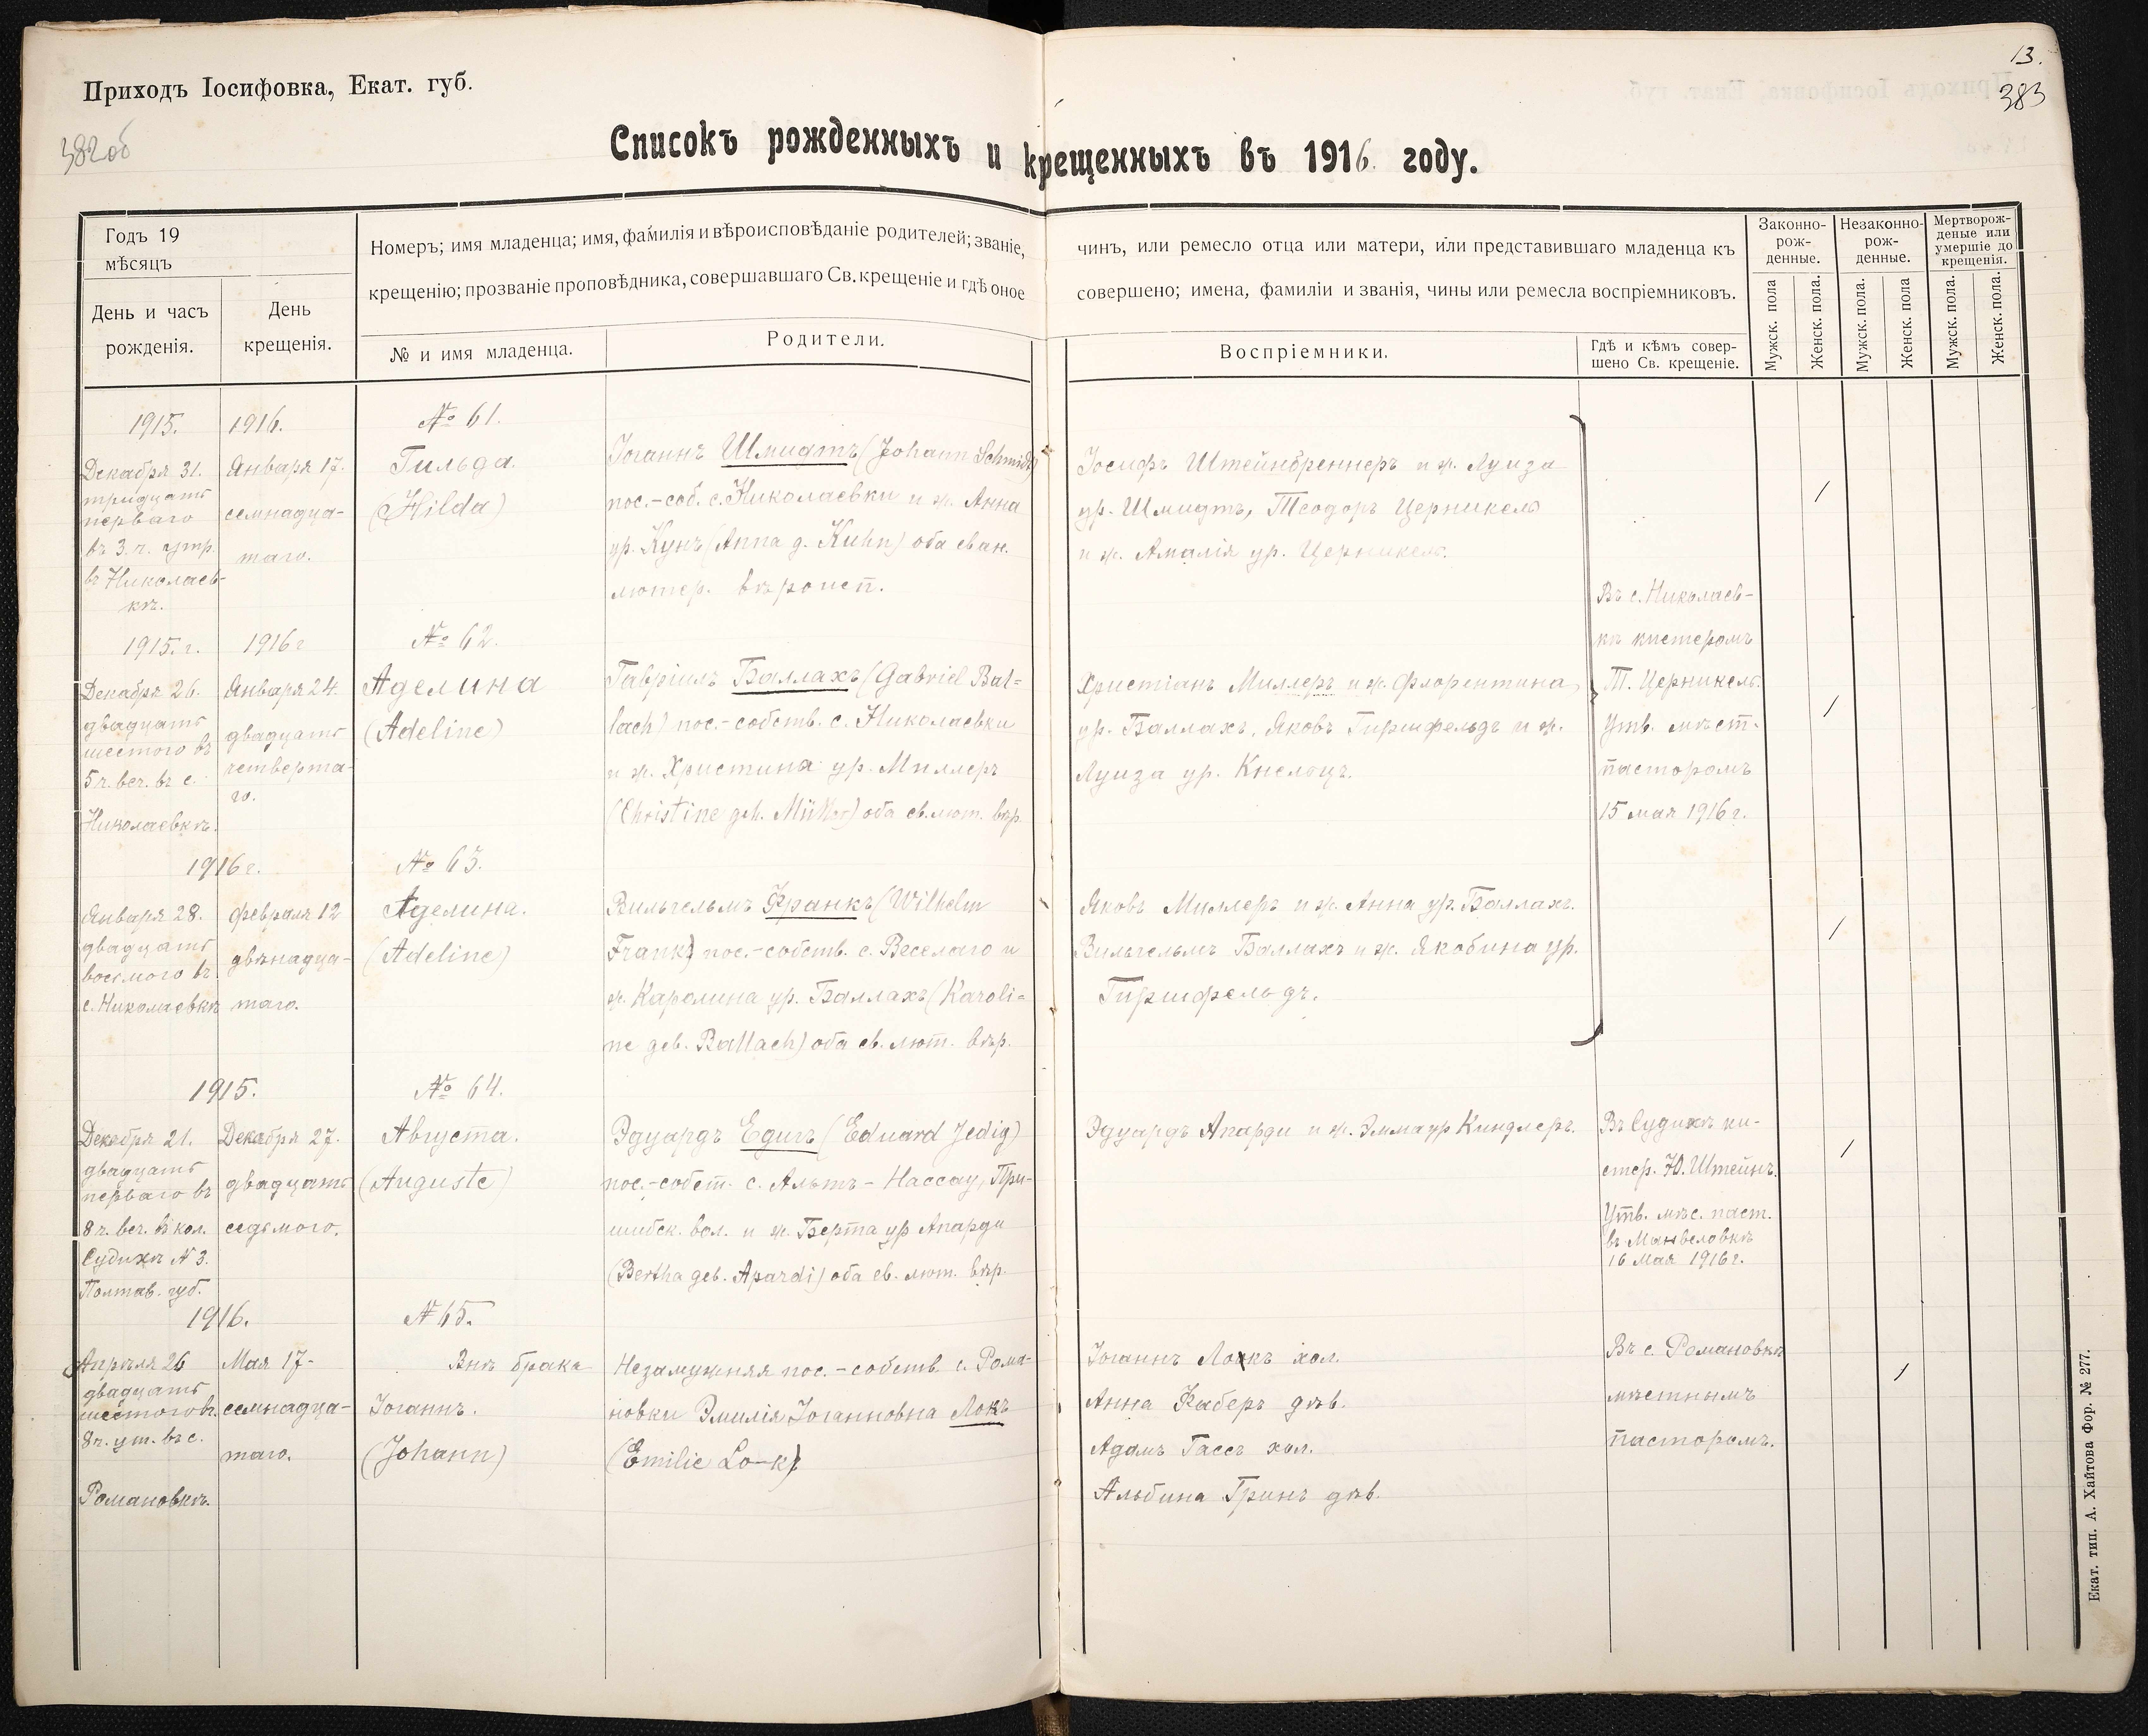 Приходъ Іосифовка, Екат. губ.
13.
383
382об
Списокъ рожденныхъ и крещенныхъ въ 1916. году.
Годъ 19
мѣсяцъ
День и часъ
рожденія.
День
крещенія.
Номеръ; имя младенца; имя, фамилія и вѣроисповѣданіе родителей; званіе,
крещенію; прозваніе проповѣдника, совершавшаго Св. крещеніе и гдѣ оное
№ и имя младенца.
Родители.
чинъ, или ремесло отца или матери, или представившаго младенца къ
совершено; имена, фамиліи и званія, чины или ремесла воспріемниковъ.
Воспріемники.
Гдѣ и кѣмъ совер-
шено Св. крещеніе.
Законно-
рож-
денные.
Незаконно-
рож-
денные.
Мертворож-
деные или
умершіе до
крещенія.
Мужск. пола
Женск. пола.
Мужск. пола.
Женск. пола
Мужск. пола.
Женск. пола.
1915.
Декабря 31.
тридцать
перваго
въ 3. ч. утр.
въ Николаев-
кѣ.
1916.
Января 17.
семнадца-
таго.
№ 61.
Гильда.
(Hilda)
Іоганнъ Шмидтъ (Johann Schmidt)
пос.-соб. с. Николаевки и ж. Анна
ур. Кунъ (Anna g. Kuhn) оба еван.
лютер. вѣроисп.
Іосифъ Штейнбреннеръ и ж. Луиза
ур. Шмидтъ, Теодоръ Церникель
и ж. Амалія ур. Церникель.
/
1915. г.
Декабря 26.
двадцать
шестого въ
5 ч. веч. въ с.
Николаевкѣ.
1916 г
Января 24.
двадцать
четверта-
го.
№ 62.
Аделина
(Adeline)
Гавріилъ Баллахъ (Gabriel Bal=
lach) пос.-собств. с. Николаевки
и ж. Христина ур. Миллеръ
(Christine geb. Müller) оба ев. лют. вѣр.
Христіанъ Миллеръ и ж. Флорентина,
ур. Баллахъ, Яковъ Гиршфельдъ и ж.
Луиза ур. Кнелоцъ.
Въ с. Николаев-
кѣ кистеромъ
Т. Церникель.
Утв. мѣст.
пасторомъ
15 мая 1916 г.
/
1916 г.
Января 28.
двадцать
восьмого въ
с. Николаевкѣ
Февраля 12
двѣнадца-
таго.
№ 63.
Аделина.
(Adeline)
Вильгельмъ Франкъ (Wilhelm
Frank) пос.-собств. с. Веселаго и
ж. Каролина ур. Баллахъ (Karoli=
ne geb. Ballach) оба ев. лют. вѣр.
Яковъ Миллеръ и ж. Анна ур. Баллахъ.
Вильгельмъ Баллахъ и ж. Якобина ур.
Гиршфельдъ.
/
1915.
Декабря 21.
двадцать
перваго въ
8 ч. веч. въ кол.
Судихѣ № 3.
Полтав. губ.
Декабря 27.
двадцать
седьмого.
№ 64.
Августа.
(Auguste)
Эдуардъ Едигъ (Eduard Jedig)
пос.-собст. с. Альтъ-Нассау, При-
шибск. вол. и ж. Берта ур Апарди
(Bertha geb. Apardi) оба ев. лют. вѣр.
Эдуардъ Апарди и ж. Эмма ур Киндлеръ.
Въ Судихѣ ки-
стер. Ю. Штейнъ.
Утв. мѣс. паст.
въ Манвеловкѣ
16 Мая 1916 г.
/
1916.
Апрѣля 26
двадцать
шестого въ
8 ч. ут. въ с.
Романовкѣ.
Мая 17-
семнадца-
таго.
№ 65.
Внѣ брака
Іоганнъ.
(Johann)
Незамужняя пос.-собств. с. Рома-
новки Эмилія Іогановна Локъ
(Emilie Lo-k)
Іоганнъ Локъ хол.
Анна Фаберъ дѣв.
Адамъ Гассъ хол.
Альбина Гринъ дѣв.
Въ с. Романовкѣ
мѣстнымъ
пасторомъ.
/
Екат. тип. А. Хайтова Фор. № 277.